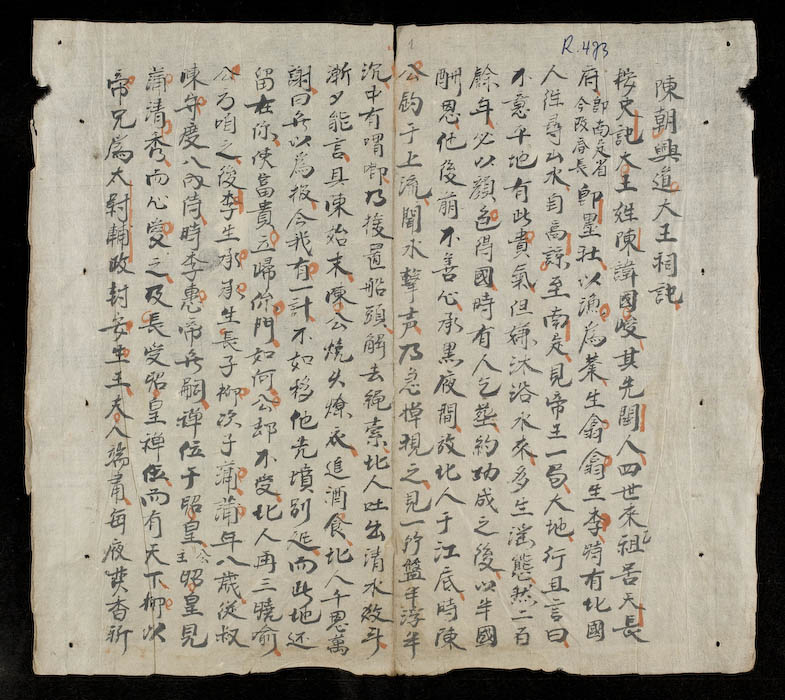 陳朝興道大王祠記
按史記大王姓陳諱國峻其先閩人四世來祖居天長
府即南定省今改春長即墨社以漁為業生翕翕生李時有北國
人往尋山水自高諒至南定見帝王一局大地行且言曰
不意平地有此貴氣但嫌沐浴水來多生滛態然二百
餘年必以顏色得國時有人乞葬約功成之後以半國
酬恩他後萠不善心承黑夜間放北人于江底時陳
公釣于上流聞水擊声乃急棹視之見一竹盤半浮半
沉中有喟啣乃援置船頭解去繩索北人吐出清水效斗
漸夕能言具陳始末陳公燒火燎衣進酒食北人千恩萬
謝曰無以為报今我有一計不如移他先墳別延而此地还
留在你使富貴立歸你門如何公却不受北人再三曉喻
公乃咱之後李生承承生長子柳次子蒲蒲年八歲從叔
陳守慶入內侍時李惠帝無嗣禪位于昭皇公主昭皇見
蒲清秀而心愛之及長受昭皇禪位而有天下柳次
帝兄為太尉輔政封安生王夫人端肅每夜焚香祈